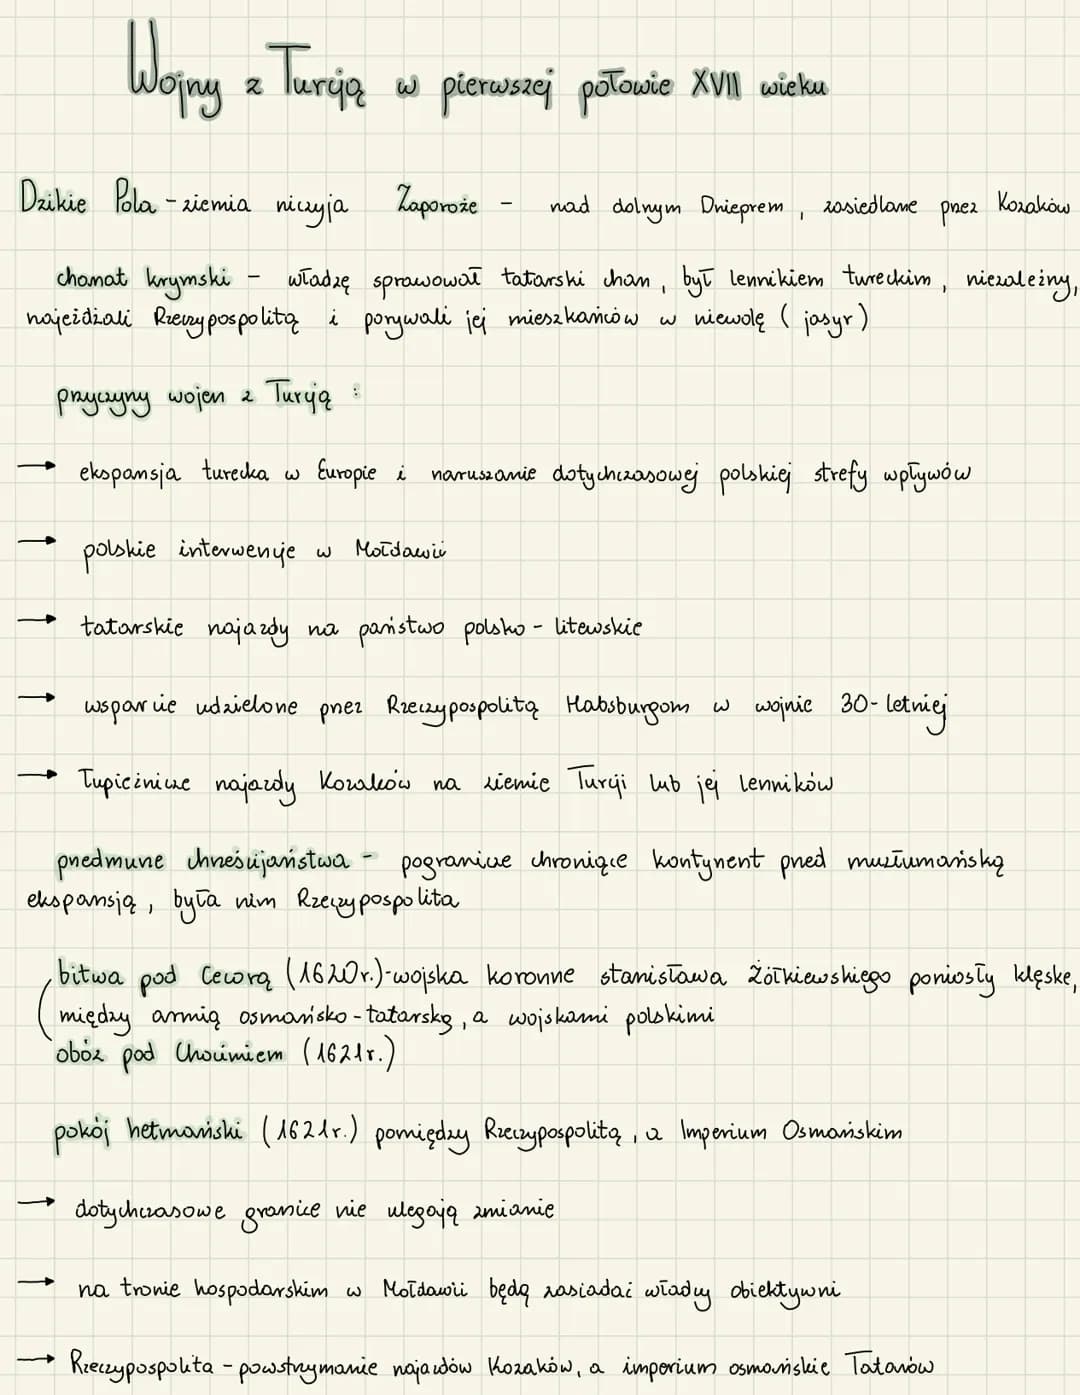 Wojny z Turcją w pierwszej połowie XVII wieku
Dzikie Pola - ziemia niczyja Zaporoże - nad dolnym Dnieprem, zasiedlane przez Kozaków
chanat krymski - władzę sprawował tatarski chan, był lennikiem tureckim, niezależny,
najeżdżali Rzeczypospolitą i porywali jej mieszkańców w niewolę (jasyr)
przyczyny wojen z Turcją :
→ ekspansja turecka w Europie i naruszanie dotychczasowej polskiej strefy wpływów
→ polskie interwencje w Mołdawii
→ tatarskie najazdy na państwo polsko - litewskie
→ wsparcie udzielone przez Rzeczypospolitą Habsburgom w wojnie 30-letniej
→ Łupieżnicze najazdy Kozaków na ziemie Turcji lub jej lenników
przedmurze chrześcijaństwa - pogranicze chroniące kontynent przed muzłumańską
ekspansją, była nim Rzeczypospolita
bitwa pod Cecorą (1620r.)-wojska koronne stanisława Żółkiewskiego poniosły klęske,
między armią osmańsko-tatarską, a wojskami polskimi
obóz pod Chocimiem (1621r.)
pokój hetmański (1621r.) pomiędzy Rzeczypospolitą, a Imperium Osmańskim
→ dotychczasowe granice nie ulegają zmianie
→ na tronie hospodarskim w Mołdawii będą zasiadać władcy obiektywni
→ Rzeczypospolita - powstrzymanie najazdów Kozaków, a imperium osmańskie Tatarów